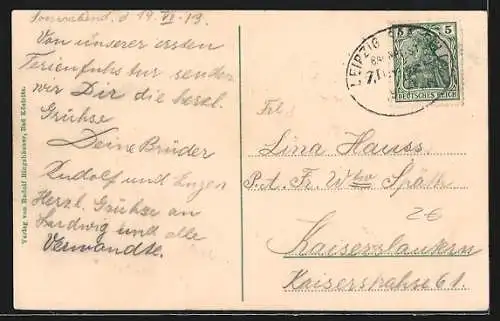 Sonnabend, d 19. VII - 13.
Von unserer ersten
Ferienfuhs tur senden
wir Dir die herzl.
Grühse
Deine Brüder
Rudolf und Eugen
Herzl. Grühse an
Ludwig und alle
Verwandte.
Verlag von Rudolf Bürgshäuser, Bad Kösen
LEIPZIG
BAHNPOST
5
DEUTSCHES REICH
Frl.
Lina Hauss.
P. A. Fr. Wtw Späth
2€
Kaiserslautern
Kaiserstrahse 61.